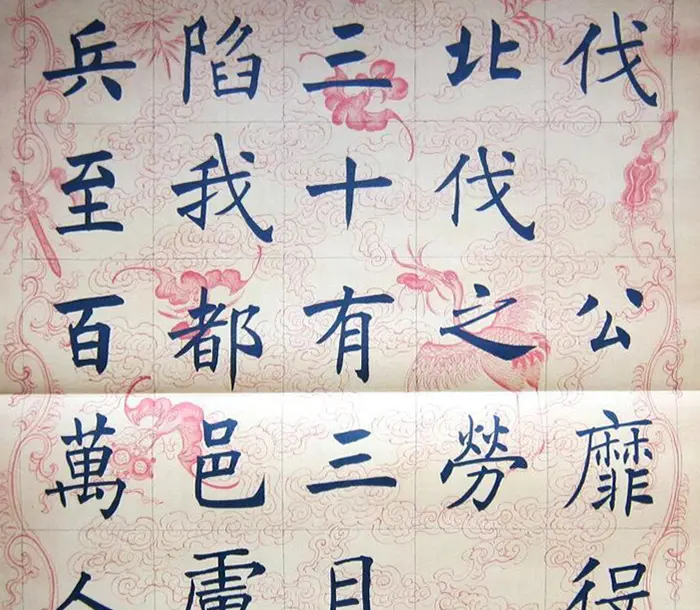 伐公靡
北伐之勞
三十有三
陷我都邑
兵至百萬人